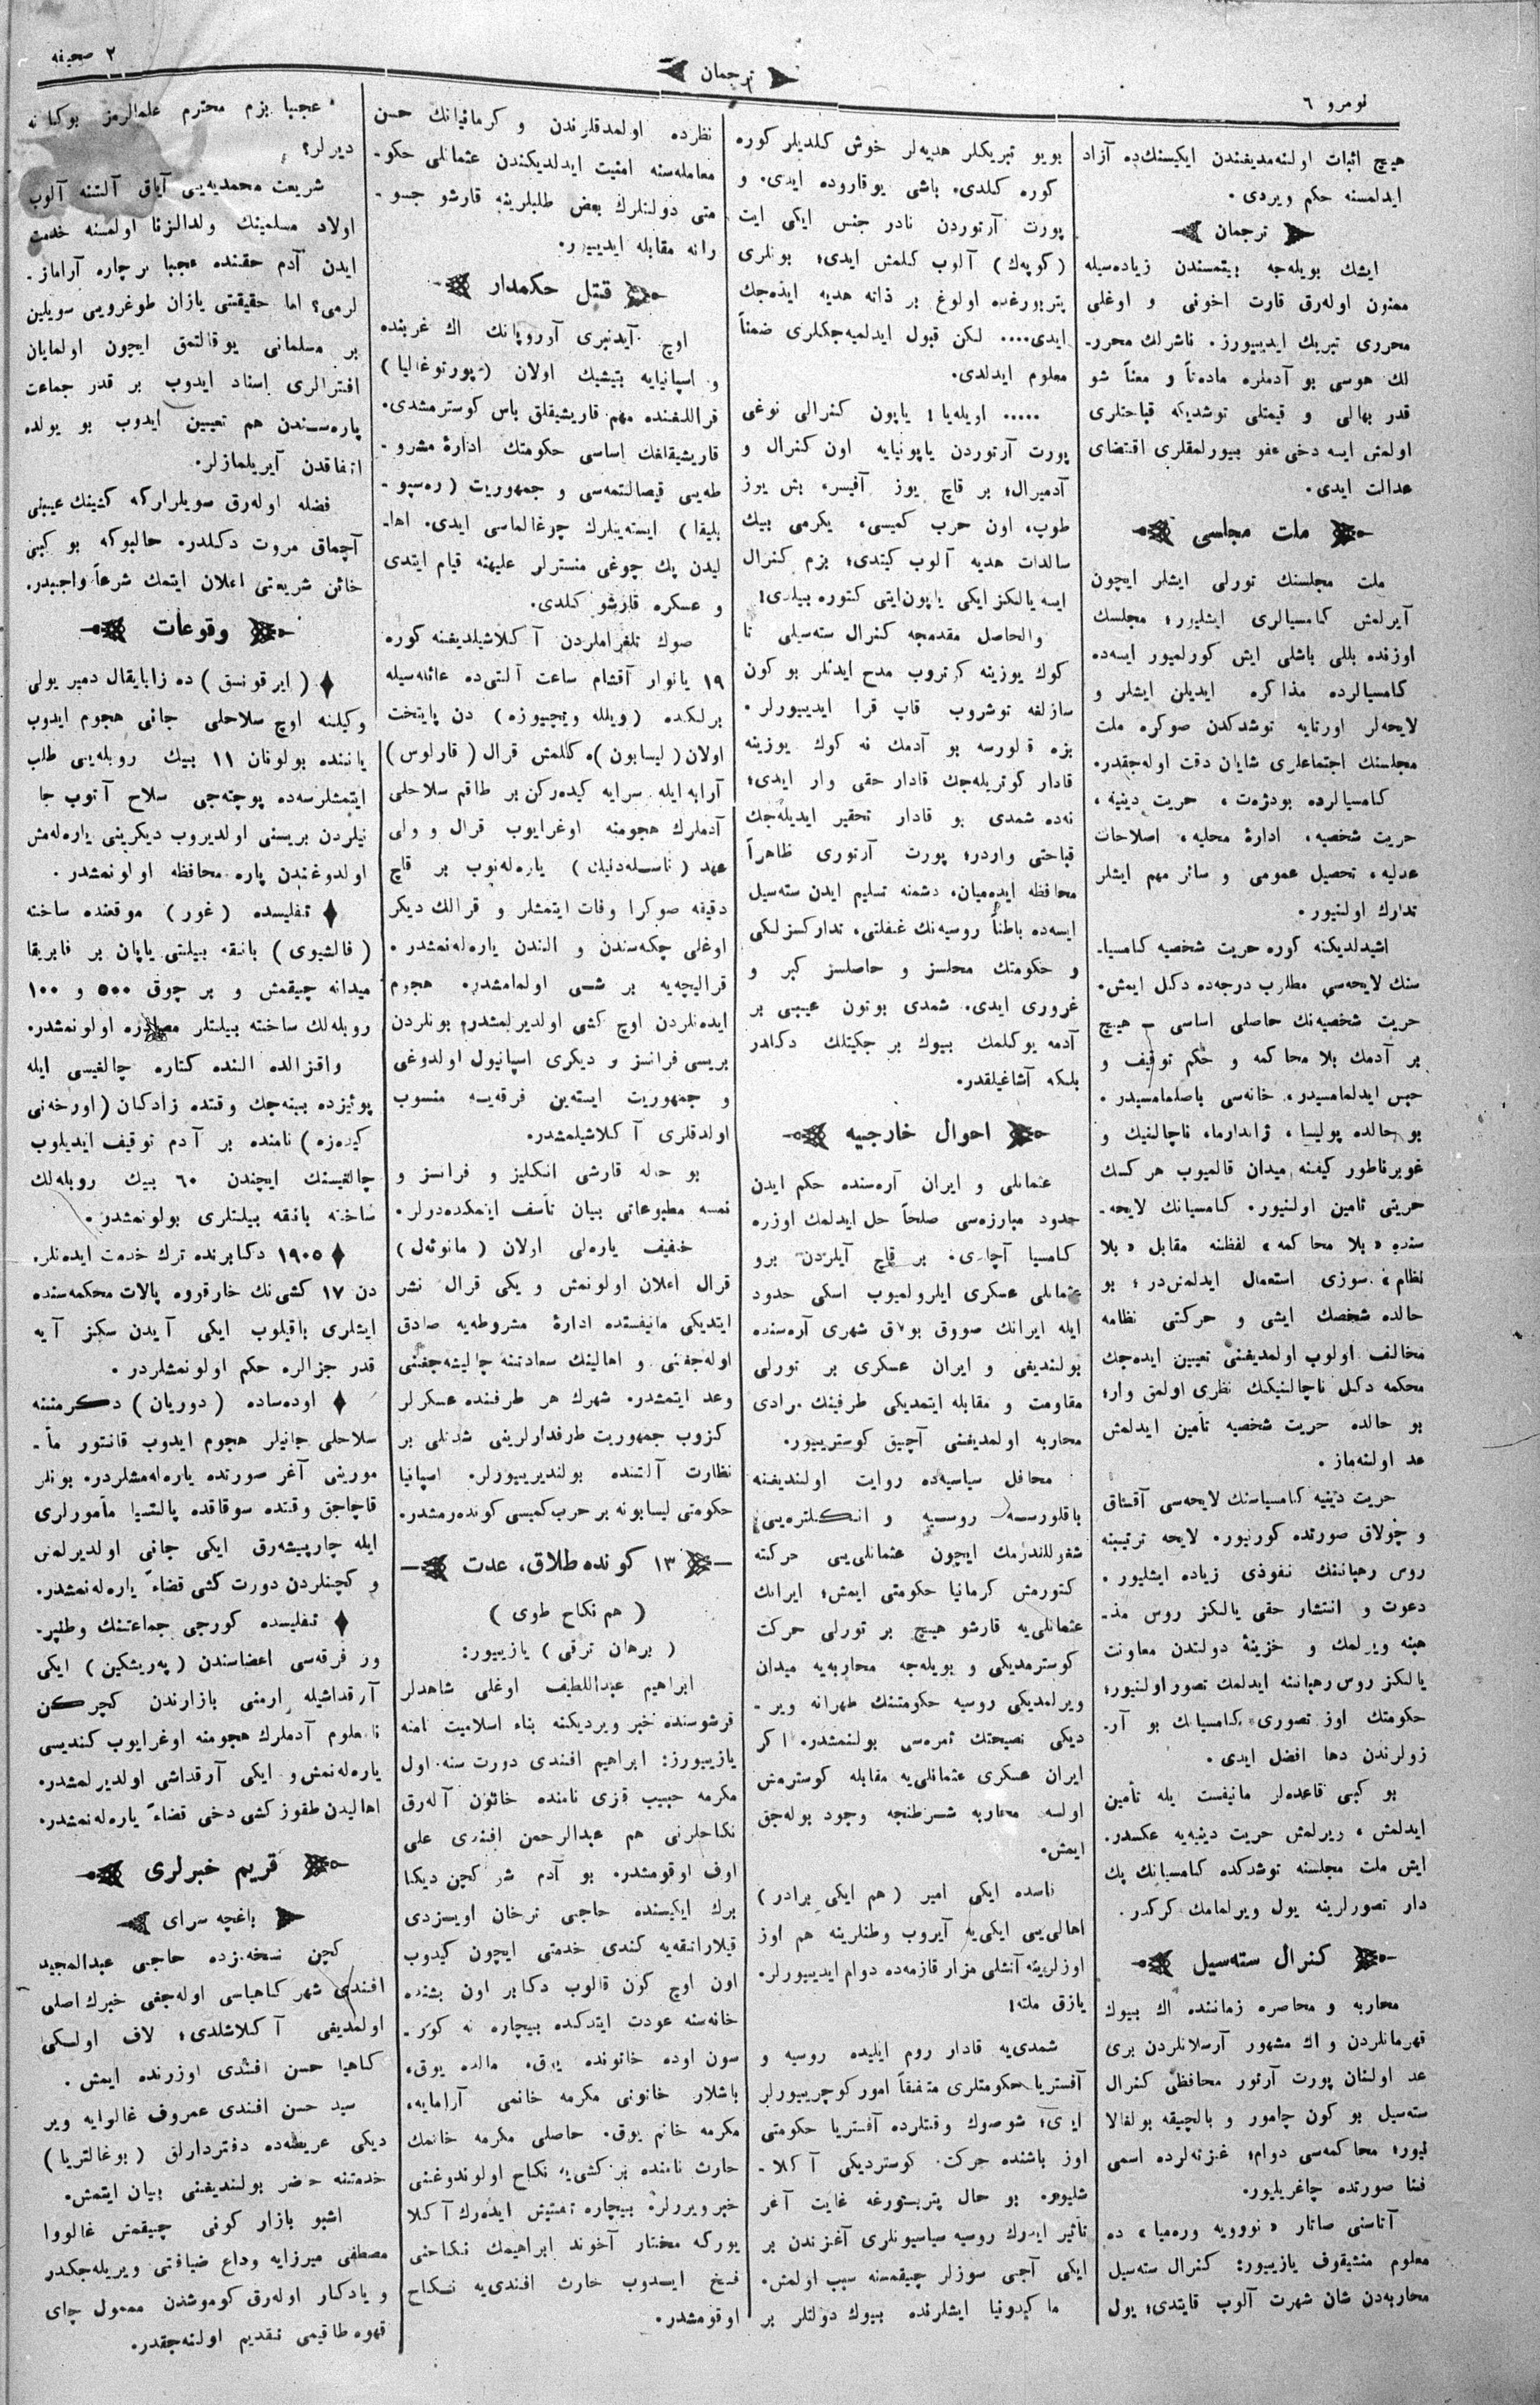 نومرو ٦
ترجمان
٢ صحیفه
هیچ اثبات اولنه‌مدیغندن ایکیسنك‌ده آزاد
ایدلمسنه حکم ویردی .
ترجمان
ایشك بویله‌جه بیتمسندن زیاده‌سیله
ممنون اوله‌رق قارت اخونی و اوغلی
محرری تبریك ایدییورز. ناشرلك محرر-
لك هوسی بو آدملره مادةً و معناً شو
قدر بهالی و قیمتلی توشدیکه قباحتلری
اولمش ایسه دخی عفو بیورلمقلری اقتضای
عدالت ایدی.
ملت مجلسی
ملت مجلسنك تورلی ایشلر ایچون
آیرلمش کامسیالری ایشلیور؛ مجلسك
اوزنده بللی باشلی ایش کورلمیور ایسه‌ده
کامسیالرده مذاکره ایدیلن ایشلر و
لایحه‌لر اورتایه توشدکدن صوکره ملت
مجلسنك اجتماعلری شایان دقت اوله‌جقدر.
کامسیالرده بودژه‌ت، حریت دینیه،
حریت شخصیه، ادارۀ محلیه، اصلاحات
عدلیه، تحصیل عمومی و سائر مهم ایشلر
تدارك اولنیور.
اشیدلدیکنه کوره حریت شخصیه کامسیا-
سنك لایحه‌سی مطلوب درجه‌ده دکل ایمش.
حریت شخصیه‌نك حاصلی اساسی - هیچ
بر آدمك بلا محاکمه و حکم توقیف و
حبس ایدلمامسیدر، خانه‌سی باصلمامسیدر.
بو حالده پولیسا، ژاندارما، ناچالنیك و
غوبرناطور کیفنه میدان قالمیوب هر کسك
حریتی تامین اولنیور. کامسیانك لایحه-
سنده «بلا محاکمه» لفظنه مقابل «بلا
نظام» سوزی استعمال ایدلمش‌در؛ بو
حالده شخصك ایشی و حرکتی نظامه
مخالف اولوب اولمدیغنی تعیین ایده‌جك
محکمه دکل ناچالنیکك نظری اولمق وار؛
بو حالده حریت شخصیه تأمین ایدلمش
عد اولنه‌ماز.
حریت دینیه کامسیاسنك لایحه‌سی آقساق
و چولاق صورتده کورنیور. لایحه ترتیبنه
روس رهبانینك نفوذی زیاده ایشلیور.
دعوت و انتشار حقی یالکز روس مذ-
هبنه ویرلمك و خزینۀ دولتدن معاونت
یالکز روس رهباننه ایدلمك تصور اولنیور؛
حکومتك اوز تصوری، کامسیانك بو آر-
زولرندن دها افضل ایدی.
بو کبی قاعده‌لر مانیفست ایله تأمین
ایدلمش، ویرلمش حریت دینیه‌یه عکسدر.
ایش ملت مجلسنه توشدکده کامسیانك پك
دار تصورلرینه یول ویرلمامك کرکدر.
کنرال سته‌سیل
محاربه و محاصره زماننده اك بیوك
قهرمانلردن و اك مشهور آرسلانلردن بری
عد اولنان پورت آرتور محافظی کنرال
سته‌سیل بو کون چامور و بالچیقه بولغالا
نیور؛ محاکمه‌سی دوام؛ غزته‌لرده اسمی
فنا صورتده چاغریلیور.
آتاسنی صاتار «نوویه وره‌میا» ده
معلوم منشیقوف یازییور: کنرال سته‌سیل
محاربه‌دن شان شهرت آلوب قایتدی؛ یول
بویو تبریکلر هدیه‌لر خوش کلدیلر کوره
کوره کلدی. باشی یوقاروده ایدی. و
پورت آرتوردن نادر جنس ایکی ایت
(کوپه‌ك) آلوب کلمش ایدی؛ بونلری
پتربورغده اولوغ بر ذاته هدیه ایده‌جك
ایدی.... لکن قبول ایدلمیه‌جکلری ضمناً
معلوم ایدلدی.
..... اویله‌یا! یاپون کنرالی نوغی
پورت آرتوردن یاپونیایه اون کنرال و
آدمیرال؛ بر قاچ یوز آفیسر، بش یوز
طوپ، اون حرب کمیسی، یکرمی بیك
سالدات هدیه آلوب کیتدی؛ بزم کنرال
ایسه یالکز ایکی یاپون‌ایتی کتوره بیلدی!
والحاصل مقدمجه کنرال سته‌سیلی تا
کوك یوزینه کوتروب مدح ایدنلر بو کون
سازلغه توشروب قاپ قرا ایدییورلر.
بزه قالورسه بو آدمك نه کوك یوزینه
قادار کوتریله‌جك قادار حقی وار ایدی؛
نه‌ده شمدی بو قادار تحقیر ایدیله‌جك
قباحتی واردر؛ پورت آرتوری ظاهراً
محافظه ایده‌میان، دشمنه تسلیم ایدن سته‌سیل
ایسه‌ده باطناً روسیه‌نك غفلتی، تدارکسزلکی
و حکومتك محلسز و حاصلسز کبر و
غروری ایدی. شمدی بوتون عیببی بر
آدمه یوکلمك بیوك بر جکیتلك دکلدر
بلکه آشاغیلقدر.
احوال خارجیه
عثمانلی و ایران آره‌سنده حکم ایدن
حدود مبارزه‌سی صلحاً حل ایدلمك اوزره
کامسیا آچلدی. بر قاچ آیلردن برو
عثمانلی عسکری ایلرولمیوب اسکی حدود
ایله ایرانك صووق بولاق شهری آره‌سنده
بولندیغی و ایران عسکری بر تورلی
مقاومت و مقابله ایتمدیکی طرفینك مرادی
محاربه اولمدیغنی آچیق کوستریبور.
محافل سیاسیه‌ده روایت اولندیغنه
باقلورسه روسیه و انکلتره‌یی
شغوللندرمك ایچون عثمانلی‌یی حرکته
کتورمش کرمانیا حکومتی ایمش؛ ایرانك
عثمانلی‌یه قارشو هیچ بر تورلی حرکت
کوسترمدیکی و بویله‌جه محاربه‌یه میدان
ویرلمدیکی روسیه حکومتنك طهرانه ویر-
دیکی نصیحتك ثمره‌سی بولنمشدر. اکر
ایران عسکری عثمانلی‌یه مقابله کوسترمش
اولسه محاربه شرطنجه وجود بوله‌جق
ایمش.
ناسده ایکی امیر (هم ایکی برادر)
اهالی‌یی ایکی‌یه آیروب وطنلرینه هم اوز
اوزلرینه آتشلی مزار قازمه‌ده دوام ایدییورلر.
یازق ملته!
شمدی‌یه قادار روم ایلیده روسیه و
آفستریا حکومتلری متفقاً امور کوچریبورلر
ایدی؛ شوصوك وقتلرده آفستریا حکومتی
اوز باشنده حرکت کوستردیکی آکلا-
شلیور. بو حال پتربورغه غایت آغر
تأثیر ایدرك روسیه سیاسیونلری آغزندن بر
ایکی آجی سوزلر چیقمسنه سبب اولمش.
ماکیدونیا ایشلرنده بیوك دولتلر بر
نظرده اولمدقلرندن و کرمانیانك حسن
معامله‌سنه امنیت ایدلدیکندن عثمانلی حکو-
متی دولتلرك بعض طلبلرینه قارشو جسو-
رانه مقابله ایدییور.
قتل حکمدار
اوچ آیدنبری آوروپانك اك غربنده
و اسپانیایه بتیشیك اولان (پورتوغالیا)
قراللغنده مهم قاریشیقلق باش کوسترمشدی.
قاریشیقلغك اساسی حکومتك ادارۀ مشرو-
طه‌یی قیصالتمه‌سی و جمهوریت (ره‌سپو-
بلیقا) ایسته‌ینلرك چوغالماسی ایدی. اها-
لیدن پك چوغی منسترلر علیهنه قیام ایتدی
و عسکره قارشو کلدی.
صوك تلغراملردن آکلاشیلدیغنه کوره
١٩ یانوار آقشام ساعت آلتی‌ده عائله‌سیله
برلکده (ویلله ویچیوزه) دن پایتخت
اولان (لیسابون)ه کلمش قرال (قارلوس)
آرابه ایله سرایه کیده‌رکن بر طاقم سلاحلی
آدملرك هجومنه اوغرایوب قرال و ولی
عهد یاره‌لەنوب بر قاچ
دقیقه صوکرا وفات ایتمشلر و قرالك دیکر
اوغلی چکه‌سندن و الندن یاره‌لەنمشدر.
قرالیچه‌یه بر شی اولمامشدر. هجوم
ایده‌نلردن اوچ کشی اولدیرلمشدر؛ بونلردن
بریسی فرانسز و دیکری اسپانیول اولدوغی
و جمهوریت ایسته‌ین فرقه‌یه منسوب
اولدقلری آکلاشیلمشدر.
بو حاله قارشی انکلیز و فرانسز و
نمسه مطبوعاتی بیان تأسف ایتمکده‌درلر.
خفیف یاره‌لی اولان (مانوئه‌ل)
قرال اعلان اولونمش و یکی قرال نشر
ایتدیکی مانیفستده ادارۀ مشروطه‌یه صادق
اوله‌جغنی و اهالینك سعادتنه چالیشه‌جغنی
وعد ایتمشدر. شهرك هر طرفنده عسکرلر
کزوب جمهوریت طرفدارلرینی شدتلی بر
نظارت آلتنده بولندیریبورلر. اسپانیا
حکومتی لیسابونه بر حرب کمیسی کوندەرمشدر.
١٣ کونده طلاق، عدت
(هم نکاح طوی)
(برهان ترقی) یازییور:
ابراهیم عبداللطیف اوغلی شاهدلر
قرشوسنده خبر ویردیکنه بناء اسلامیت نامنه
یازییورز: ابراهیم افندی دورت سنه اول
مکرمه حبیب قزی نامنده خاتون آلەرق
نکاحلرنی هم عبدالرحمن افندی علی
اوف اوقومشدر. بو آدم شو کچن دیکا
برك ایکیسنده حاجی ترخان اویزدی
قیلارانقه‌یه کندی خدمتی ایچون کیدوب
اون اوچ کون قالوب دکابر اون بشنده
خانه‌سنه عودت ایتدکده بیچاره نه کور-
سون اوده خاتونده یوق، مالده یوق،
باشلار خاتونی مکرمه خانمی آرامایه،
مکرمه خانم یوق. حاصلی مکرمه خانمك
حارث نامنده بر کشی‌یه نکاح اولوندوغنی
خبر ویررلر. بیچاره تفتیش ایدەرك آکلا
یورکه مختار آخوند ابراهیمك نکاحنی
فسخ ایدوب حارث افندی‌یه نکاح
اوقومشدر.
عجبا بزم محترم علمالرمز بوکا نه
دیرلر؟
شریعت محمدیه‌یی آیاق آلتنه آلوب
اولاد مسلمینك ولدالزنا اولمسنه خدمت
ایدن آدم حقنده عجبا بر چاره آراماز-
لرمی؟ اما حقیقتی یازان طوغرویی سویلین
بر مسلمانی یوقالتمق ایچون اولمایان
افترالری اسناد ایدوب بر قدر جماعت
پاره‌سندن هم تعیین ایدوب بو یولده
اتفاقدن آیریلمازلر.
فضله اوله‌رق سویلرلرکه کشینك عیبنی
آچماق مروت دکلدر. حالبوکه بو کبی
خائن شریعتی اعلان ایتمك شرعاً واجبدر.
وقوعات
(ایرقوتسق) ده زابایقال دمیر یولی
وکیلنه اوچ سلاحلی جانی هجوم ایدوب
یاننده بولونان ١١ بیك روبله‌یی طلب
ایتمشلرسه‌ده پوچته‌جی سلاح آتوب جا
نیلردن بریسنی اولدیروب دیکرینی یاره‌لەمش
اولدوغندن پاره محافظه اولونمشدر.
تفلیسده (غور) موقعنده ساخته
(فالشیوی) بانقه بیلتی یاپان بر فابریقا
میدانه چیقمش و بر چوق ٥٠٠ و ١٠٠
روبله‌لك ساخته بیلتلر مصادره اولونمشدر.
واقزالده النده کتاره چالغیسی ایله
پوئیزده بینه‌جك وقتده زادکان (اورخه‌نی
کیدزه) نامنده بر آدم توقیف ایدیلوب
چالغیسنك ایچندن ٦٠ بیك روبله‌لك
ساخته بانقه بیلتلری بولونمشدر.
١٩٠٥ دکابرنده ترك خدمت ایده‌نلر-
دن ١٧ کشی‌نك خارقوه پالات محکمه‌سنده
ایشلری باقیلوب ایکی آیدن سکز آیه
قدر جزالره حکم اولونمشلردر.
اوده‌ساده (دوریان) دکرمننه
سلاحلی جانیلر هجوم ایدوب قانتور مأ-
مورینی آغر صورتده یاره‌لەمشلردر. بونلر
قاچاجق وقتده سوقاقده پالتسیا مأمورلری
ایله چارپیشه‌رق ایکی جانی اولدیرلمش
و کچنلردن دورت کشی قضاءً یاره‌لەنمشدر.
تفلیسده کورجی جماعتنك وطنپر-
ور فرقه‌سی اعضاسندن (په‌ریشکین) ایکی
آرقداشیله ارمنی بازارندن کچرکن
نامعلوم آدملرك هجومنه اوغرایوب کندیسی
یاره‌لەنمش و ایکی آرقداشی اولدیرلمشدر.
اهالیدن طقوز کشی دخی قضاءً یاره‌لەنمشدر.
قریم خبرلری
باغچه سرای
کچن نسخه‌مزده حاجی عبدالمجید
افندی شهر کاهیاسی اوله‌جغی خبرك اصلی
اولمدیغی آکلاشلدی؛ لاف اولسکی
کاهیا حسن افندی اوزرنده ایمش.
سید حسن افندی عمروف غالوایه ویر
دیکی عریضه‌ده دفتردارلق (بوغالتریا)
خدمتنه حاضر بولندیغنی بیان ایتمش.
اشبو بازار کونی چیقمش غالووا
مصطفی میرزایه وداع ضیافتی ویریله‌جکدر
و یادکار اوله‌رق کوموشدن معمول چای
قهوه طاقیمی تقدیم اولنه‌جقدر.